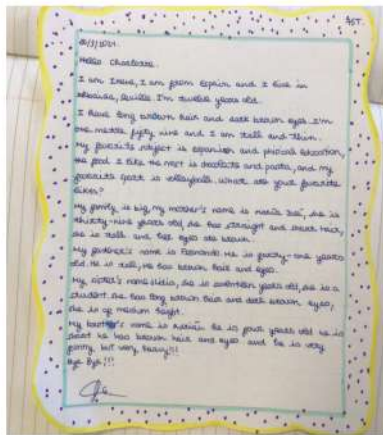 Hello Charlotte.
I am Irene, I am from Espain and I live in
Sevilla I'm twelve years old.
I have long brown hair and dark brown eyes. I'm
one metre fifty nine and I am tall and thin.
My favorite object is espanish and phisical education,
the food I like the most is and pasta, and my
favorite sport is volleyball. What are your favorite
My family is big, my mother's name is María she is
thirty-nine years old, she has straight and hair,
she is tall and her eyes are brown.
My father's name is Fernando. He is fourty-one years
old. He is tall, He has brown hair and eyes.
My sister's name is he is years old, she is a
student. She has long brown hair and dark brown eyes,
she is of medium height.
My brother's name is Adrián he is four years old he is
short he has brown hair and eyes and he is very
funny but very heavy!!!
Bye Bye!!!